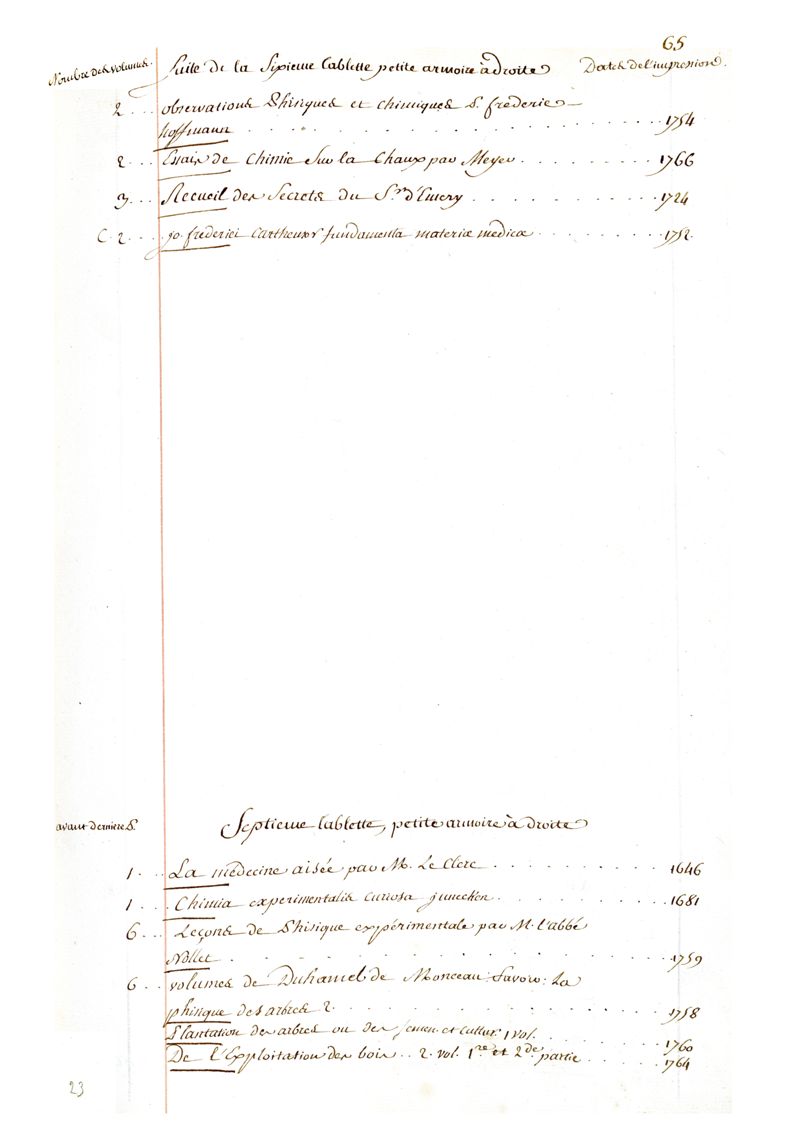 65
Nombre des volumes. Suite de la Sixieme tablette petite armoire à droite Dates de l'impression.
2 ... observations Phisiques et chimiques d. frederic
hoffmann ........ 1754
2 ... Essais de Chimie Sur la Chaux par Meyer ........ 1766
3 ... Recueil des Secrets du Sr. d'Emery ........ 1724
C. 2 ... jo. frederici Cartheuser fundamenta materiæ medicæ ........ 1752
avant derniere S. Septieme tablette, petite armoire à droite
1 ... La médecine aisée par M. Le Clerc ........ 1646
1 ... Chimia experimentalis curiosa juncken ........ 1681
6 ... Leçons de Phisique expérimentale par M. l'abbé
Nollet ........ 1759
6 .. volumes de Duhamel de Monceau Savoir: La
phisique des arbres 2 ........ 1758
Plantation des arbres ou des semen. et cultur. 1 vol. ........ 1760
De l'Exploitation des bois .. 2. vol. 1re et 2de partie ........ 1764
23